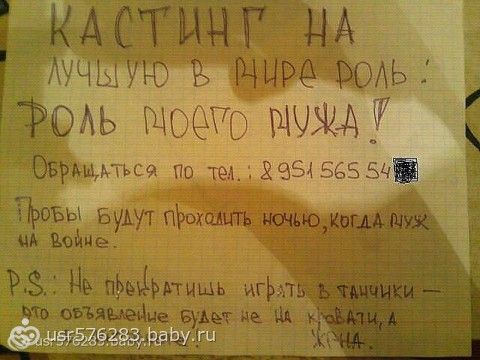 КАСТИНГ НА
ЛУЧШУЮ В МИРЕ РОЛЬ:
РОЛЬ МОЕГО МУЖА!
ОБРАЩАТЬСЯ ПО ТЕЛ.: 8 951 565 54
ПРОБЫ БУДУТ ПРОХОДИТЬ НОЧЬЮ, КОГДА МУЖ
НА ВОЙНЕ.
P.S.: НЕ ПРЕКРАТИШЬ ИГРАТЬ В ТАНЧИКИ —
ЭТО ОБЪЯВЛЕНИЕ БУДЕТ НЕ НА КРОВАТИ, А
usr576283.baby.ru
usr576283.baby.ru